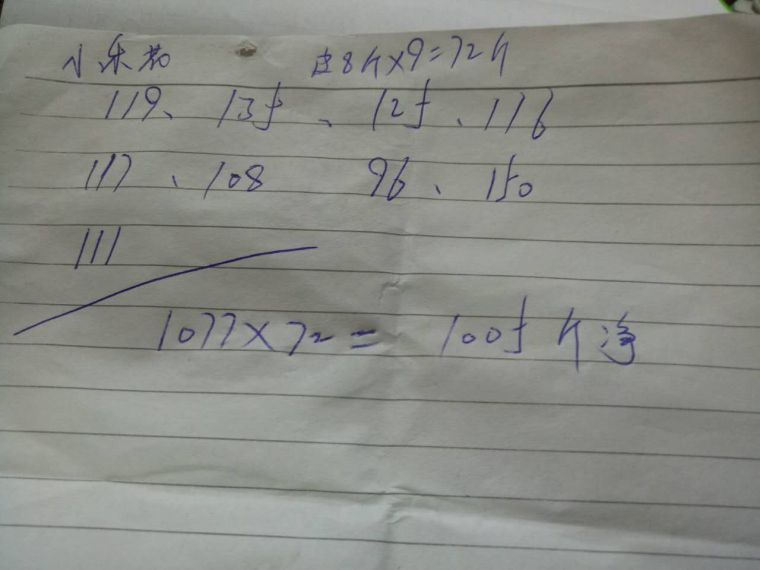 小 皮8斤×9=72斤
119、135、125、116
117、108 96、150
111
1077×72= 1005斤净